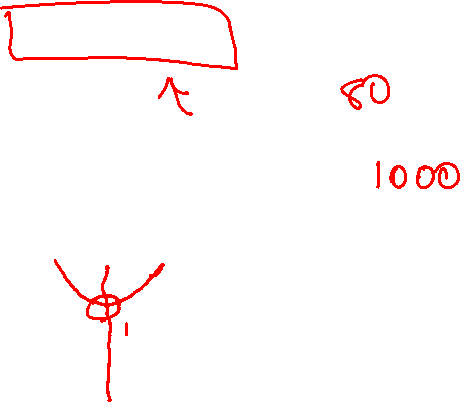 80
1000
1